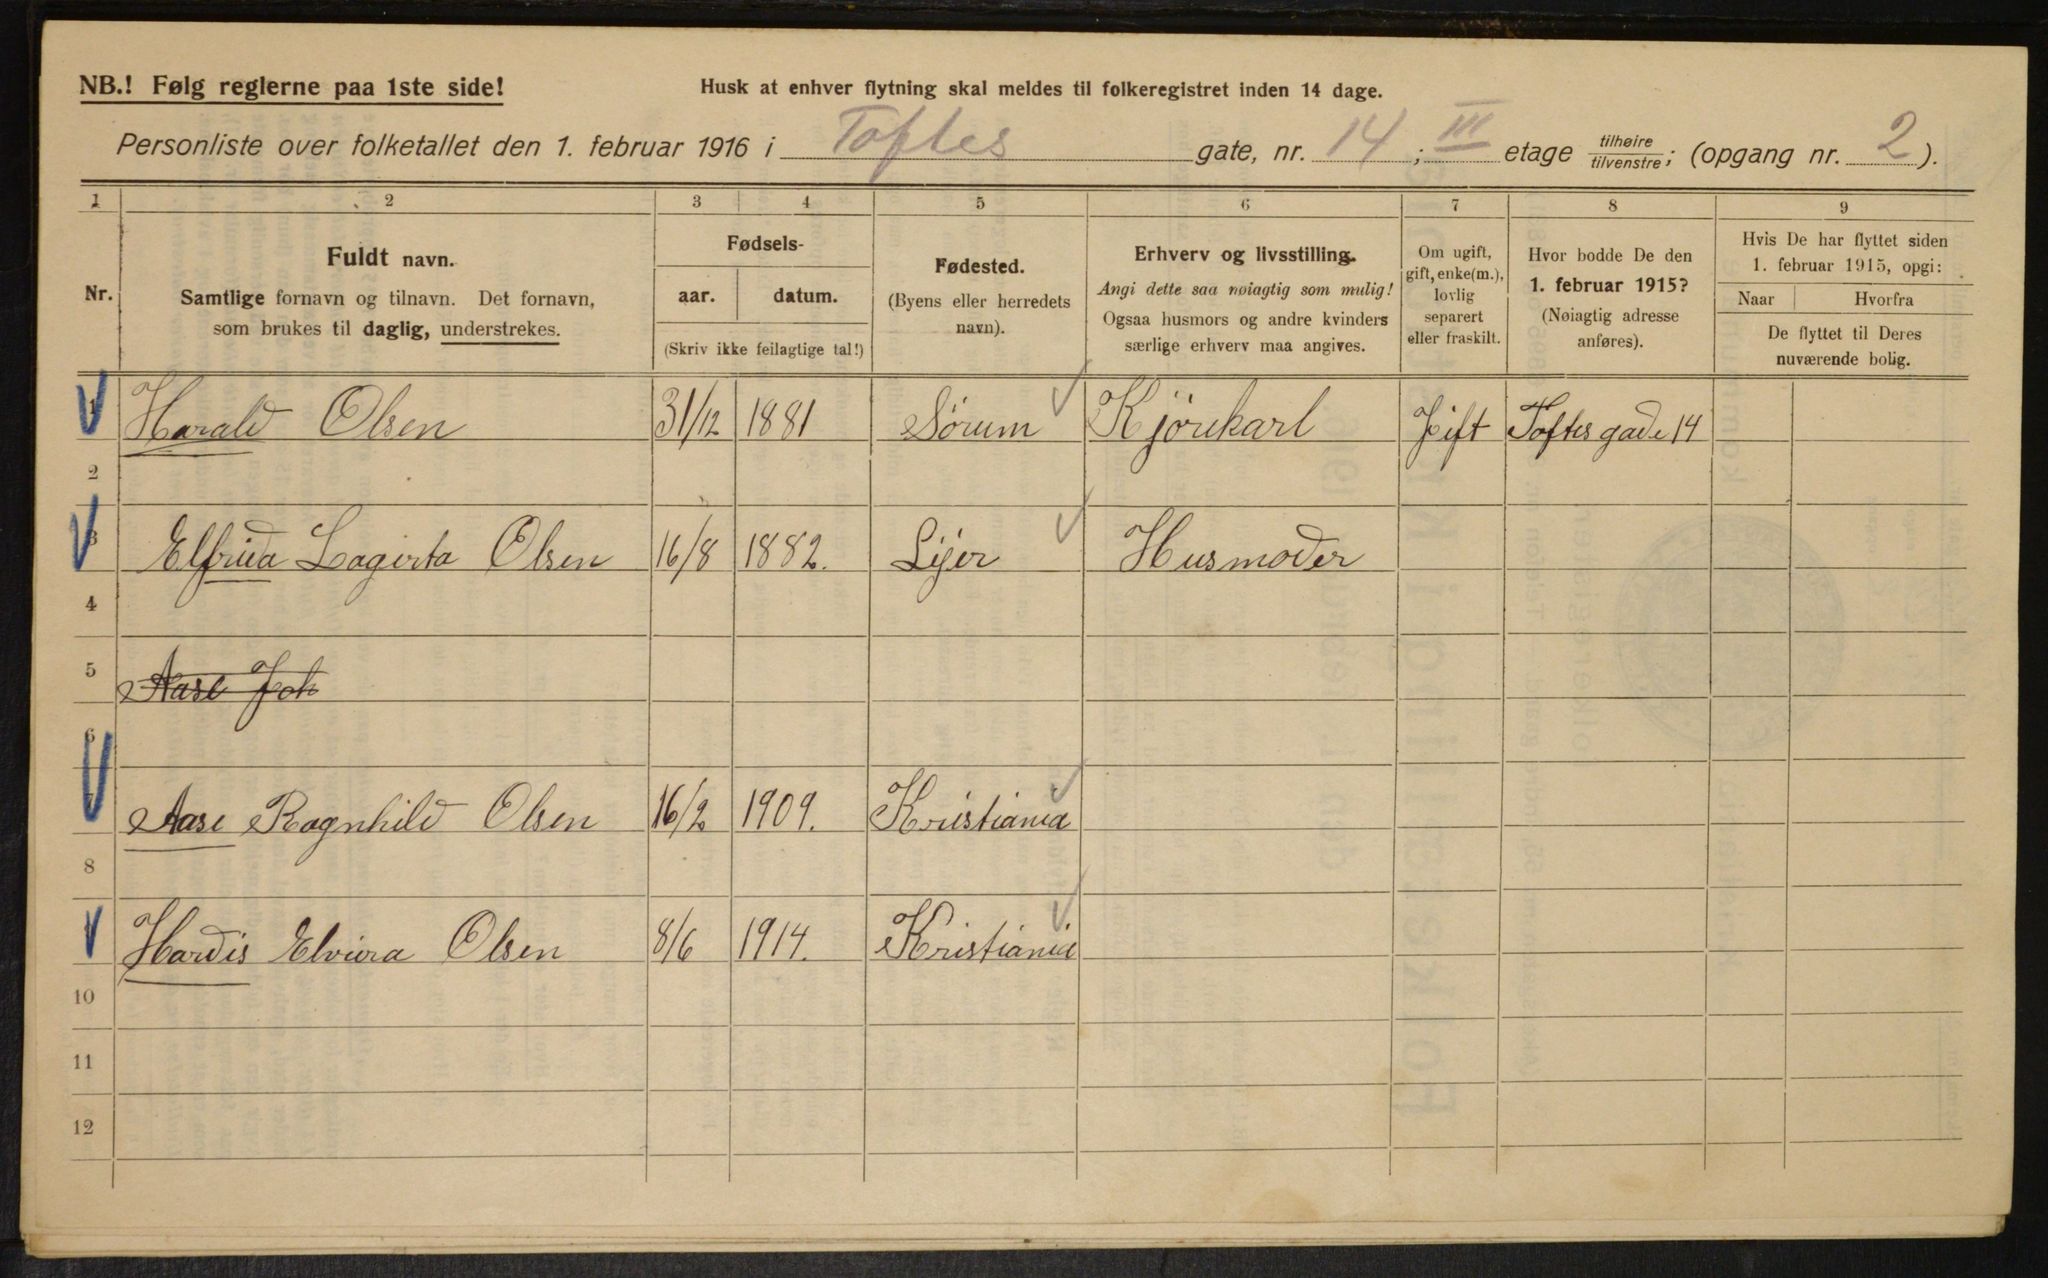 NB.! Følg reglerne paa 1ste side!
Husk at enhver flytning skal meldes til folkeregistret inden 14 dage.
Personliste over folketallet den 1. februar 1916 i Toftes gate, nr. 14 ; III etage tilhøire/tilvenstre; (opgang nr. 2).
1 2 3 4 5 6 7 8 9
Nr.
Fuldt navn.
Samtlige fornavn og tilnavn. Det fornavn,
som brukes til daglig, understrekes.
Fødsels-
aar. datum.
(Skriv ikke feilagtige tal!)
Fødested.
(Byens eller herredets
navn).
Erhverv og livsstilling.
Angi dette saa nøiagtig som mulig!
Ogsaa husmors og andre kvinders
særlige erhverv maa angives.
Om ugift,
gift, enke(m.),
lovlig
separert
eller fraskilt.
Hvor bodde De den
1. februar 1915?
(Nøiagtig adresse
anføres).
Hvis De har flyttet siden
1. februar 1915, opgi:
Naar Hvorfra
De flyttet til Deres
nuværende bolig.
1 Harald Olsen 31/12 1881 Sørum Kjørekarl Gift Toftes gade 14
2
3 Elfrida Lagerta Olsen 16/8 1882. Lijer Husmoder
4
5 Aase Joh
6
7 Aase Ragnhild Olsen 16/2 1909. Kristiania
8
9 Hardis Elvira Olsen 8/6 1914. Kristiania
10
11
12